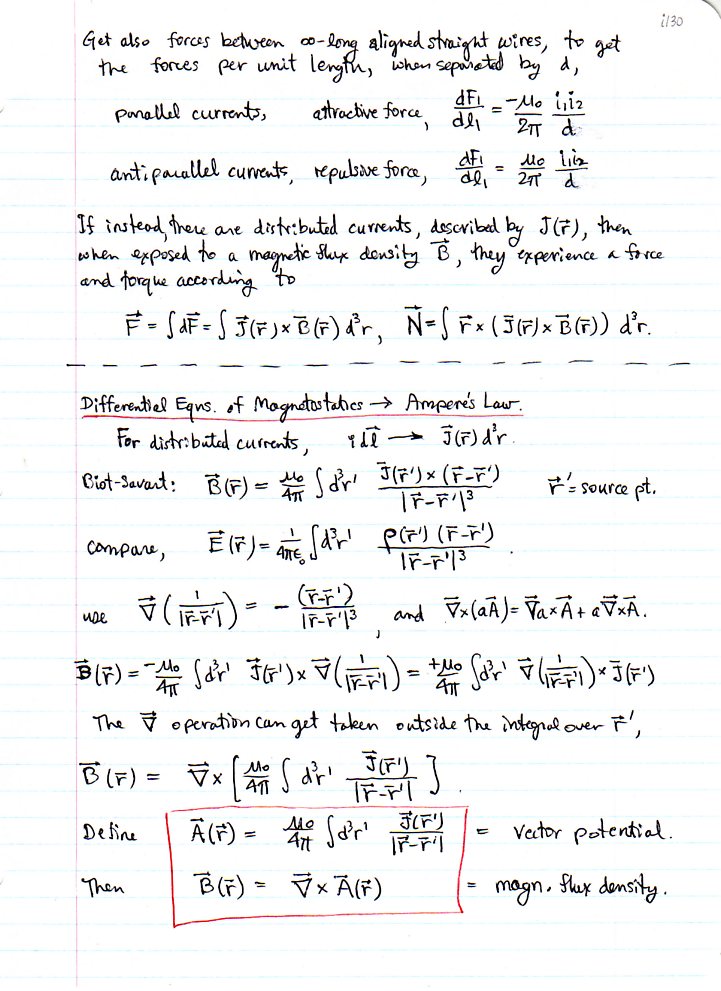 i/30
Get also forces between ∞-long aligned straight wires, to get
the forces per unit length, when separated by d,
parallel currents, attractive force, dF₁/dl₁ = -μ₀/2π i₁i₂/d
antiparallel currents, repulsive force, dF₁/dl₁ = μ₀/2π i₁i₂/d
If instead, there are distributed currents, described by J(r⃗), then
when exposed to a magnetic flux density B⃗, they experience a force
and torque according to
F⃗ = ∫dF⃗ = ∫ J⃗(r⃗) × B⃗(r⃗) d³r, N⃗ = ∫ r⃗ × (J⃗(r⃗) × B⃗(r⃗)) d³r.
Differential Eqns. of Magnetostatics → Ampere's Law.
For distributed currents, i dl⃗ → J⃗(r⃗) d³r.
Biot-Savart: B⃗(r⃗) = μ₀/4π ∫d³r' J⃗(r⃗') × (r⃗-r⃗')/|r⃗-r⃗'|³ r⃗' = source pt.
compare, E⃗(r⃗) = 1/4πε₀ ∫d³r' ρ(r⃗') (r⃗-r⃗')/|r⃗-r⃗'|³.
use ∇⃗(1/|r⃗-r⃗'|) = - (r⃗-r⃗')/|r⃗-r⃗'|³, and ∇⃗×(aA⃗) = ∇⃗a×A⃗ + a∇⃗×A⃗.
B⃗(r⃗) = -μ₀/4π ∫d³r' J⃗(r⃗') × ∇⃗(1/|r⃗-r⃗'|) = +μ₀/4π ∫d³r' ∇⃗(1/|r⃗-r⃗'|) × J⃗(r⃗')
The ∇⃗ operation can get taken outside the integral over r⃗',
B⃗(r⃗) = ∇⃗ × [μ₀/4π ∫ d³r' J⃗(r⃗')/|r⃗-r⃗'|].
Define A⃗(r⃗) = μ₀/4π ∫d³r' J⃗(r⃗')/|r⃗-r⃗'| = vector potential.
Then B⃗(r⃗) = ∇⃗ × A⃗(r⃗) = magn. flux density.